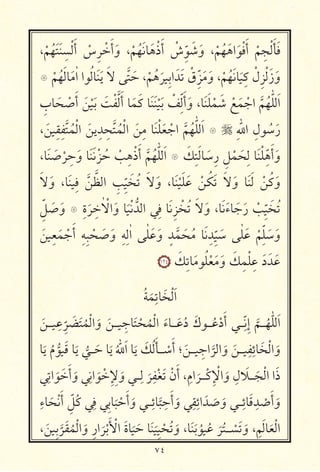 فَأَلْجِمْ أَفْوَاهَهُمْ، وَشَوِّشْ أَذْهَانَهُمْ، وَأَخْرِسْ أَلْسِنَتَهُمْ،
وَزَلْزِلْ كِيَانَهُمْ، وَمَزِّقْ تَدَابِيرَهُمْ، حَتَّى لَا يَنَالُوا اٰمَالَهُمْ ۞
اَللّٰهُمَّ اجْمَعْ شَمْلَنَا، وَأَلِّفْ بَيْنَنَا كَمَا أَلَّفْتَ بَيْنَ أَصْحَابِ
رَسُولِ اللهِ ﷺ ۞ اَللّٰهُمَّ اجْعَلْنَا مِنَ الْمُتَّحِدِينَ الْمُتَّفِقِينَ،
وَأَهِّلْنَا لِحَمْلِ رِسَالَتِكَ ۞ اَللّٰهُمَّ أَذْهِبْ حُزْنَنَا وَحِرْصَنَا،
وَكُنْ لَنَا وَلَا تَكُنْ عَلَيْنَا، وَلَا تُخَيِّبِ الظَّنَّ فِينَا، وَلَا
تُخَيِّبْ رَجَاءَنَا، وَلَا تُخْزِنَا فِي الدُّنْيَا وَالْآخِرَةِ ۞ وَصَلِّ
وَسَلِّمْ عَلَى سَيِّدِنَا مُحَمَّدٍ وَعَلَى اٰلِهِ وَصَحْبِهِ أَجْمَعِينَ
عَدَدَ عِلْمِكَ وَمَعْلُومَاتِكَ
اَلْخَاتِمَةُ
اَللّٰهُمَّ إِنِّي أَدْعُوكَ دُعَاءَ الْمُحْتَاجِينَ وَالْمُتَضَرِّعِينَ
وَالْخَائِفِينَ وَالرَّاجِينَ؛ أَسْأَلُكَ يَا اَللهُ يَا حَيُّ يَا قَيُّومُ يَا
ذَا الْجَلَالِ وَالْإِكْرَامِ، أَنْ تَغْفِرَ لِي وَلِإِخْوَانِي وَأَخَوَاتِي
وَأَصْدِقَائِي وَصَدِيقَاتِي وَأَحِبَّائِي وَأَحْبَابِي فِي كُلِّ أَنْحَاءِ
الْعَالَمِ، وَتَسْتُرَ عُيُوبَنَا، وَتُحْيِيَنَا حَيَاةَ الْأَبْرَارِ وَالْمُقَرَّبِينَ،
٧٤